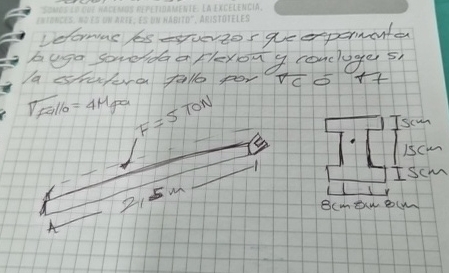 SOMOS LO QUE HACEMOS REPETIDAMENTE. LA EXCELENCIA,
ENTONCES, NO ES UN ARTE, ES UN HÁBITO", ARISTÓTELES
los esfuerzos que experimenta
la viga sometida a flexión y concluya si
la estructura fallo por σc ó σt
σFallo = 4Mpa
F = 5 TON
5cm
15cm
5cm
2,5m
A
8cm 8cm 8cm